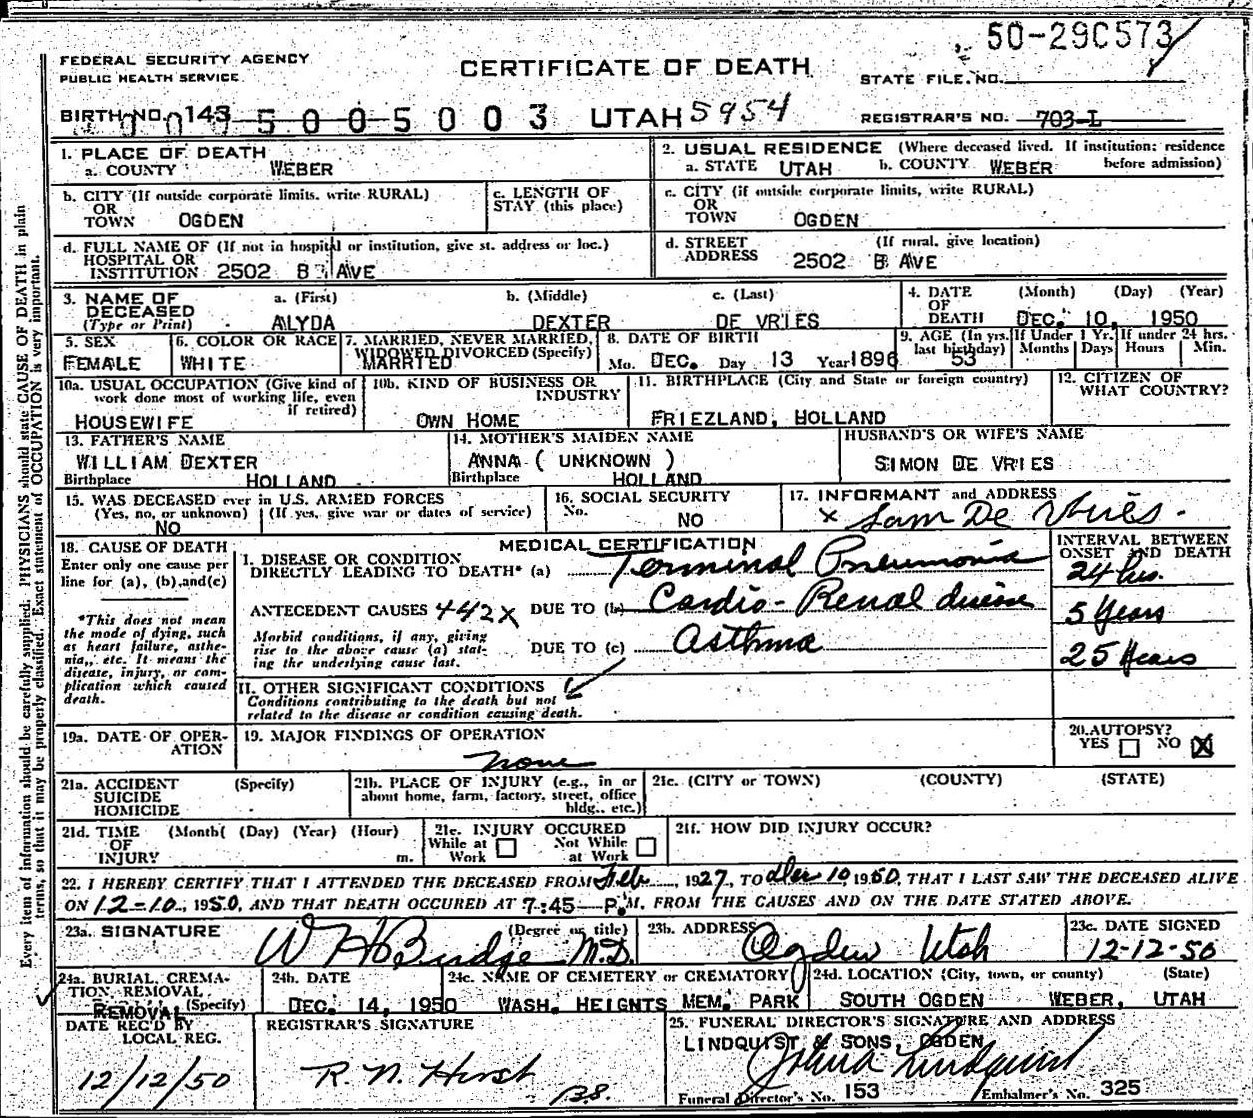 50-29C573
FEDERAL SECURITY AGENCY
PUBLIC HEALTH SERVICE
CERTIFICATE OF DEATH
STATE FILE NO.
BIRTH NO. 143
5005003
UTAH 5954
REGISTRAR'S NO. 703-L
1. PLACE OF DEATH
a. COUNTY WEBER
2. USUAL RESIDENCE (Where deceased lived. If institution: residence before admission)
a. STATE UTAH b. COUNTY WEBER
b. CITY (If outside corporate limits, write RURAL) OR TOWN OGDEN
c. LENGTH OF STAY (this place)
c. CITY (if outside corporate limits, write RURAL) OR TOWN OGDEN
d. FULL NAME OF (If not in hospital or institution, give st. address or loc.)
HOSPITAL OR INSTITUTION 2502 B AVE
d. STREET ADDRESS (If rural, give location)
2502 B AVE
3. NAME OF DECEASED (Type or Print)
a. (First) b. (Middle) c. (Last)
ALYDA DEXTER DE VRIES
4. DATE OF DEATH (Month) (Day) (Year)
DEC. 10, 1950
5. SEX FEMALE
6. COLOR OR RACE WHITE
7. MARRIED, NEVER MARRIED, WIDOWED DIVORCED (Specify) MARRIED
8. DATE OF BIRTH
Mo. DEC. Day 13 Year 1896
9. AGE (In yrs. last birthday) 53
If Under 1 Yr. Months Days
If under 24 hrs. Hours Min.
10a. USUAL OCCUPATION (Give kind of work done most of working life, even if retired)
HOUSEWIFE
10b. KIND OF BUSINESS OR INDUSTRY
OWN HOME
11. BIRTHPLACE (City and State or foreign country)
FRIEZLAND, HOLLAND
12. CITIZEN OF WHAT COUNTRY?
13. FATHER'S NAME
WILLIAM DEXTER
Birthplace HOLLAND
14. MOTHER'S MAIDEN NAME
ANNA ( UNKNOWN )
Birthplace HOLLAND
HUSBAND'S OR WIFE'S NAME
SIMON DE VRIES
15. WAS DECEASED ever in U.S. ARMED FORCES
(Yes, no, or unknown) (If yes, give war or dates of service)
NO
16. SOCIAL SECURITY No.
NO
17. INFORMANT and ADDRESS
x Sam De Vries.
18. CAUSE OF DEATH
Enter only one cause per line for (a), (b), and (c)
*This does not mean the mode of dying, such as heart failure, asthenia, etc. It means the disease, injury, or complication which caused death.
MEDICAL CERTIFICATION
INTERVAL BETWEEN ONSET AND DEATH
I. DISEASE OR CONDITION DIRECTLY LEADING TO DEATH* (a) Terminal Pneumonia 24 hrs.
ANTECEDENT CAUSES 442X DUE TO (b) Cardio-Renal disease 5 Years
Morbid conditions, if any, giving rise to the above cause (a) stating the underlying cause last.
DUE TO (c) Asthma 25 Years
II. OTHER SIGNIFICANT CONDITIONS
Conditions contributing to the death but not related to the disease or condition causing death.
19a. DATE OF OPERATION
19. MAJOR FINDINGS OF OPERATION
none
20. AUTOPSY?
YES NO X
21a. ACCIDENT SUICIDE HOMICIDE (Specify)
21b. PLACE OF INJURY (e.g., in or about home, farm, factory, street, office bldg., etc.)
21c. (CITY or TOWN) (COUNTY) (STATE)
21d. TIME OF INJURY (Month( (Day) (Year) (Hour) m.
21e. INJURY OCCURED
While at Work Not While at Work
21f. HOW DID INJURY OCCUR?
22. I HEREBY CERTIFY THAT I ATTENDED THE DECEASED FROM Feb, 1927, TO Dec 10, 1950, THAT I LAST SAW THE DECEASED ALIVE
ON 12-10, 1950, AND THAT DEATH OCCURED AT 7:45 P.M. FROM THE CAUSES AND ON THE DATE STATED ABOVE.
23a. SIGNATURE (Degree or title)
W H Budge M.D.
23b. ADDRESS
Ogden Utah
23c. DATE SIGNED
12-12-50
24a. BURIAL, CREMATION, REMOVAL (Specify)
REMOVAL
24b. DATE
DEC. 14, 1950
24c. NAME OF CEMETERY or CREMATORY
WASH. HEIGHTS MEM. PARK
24d. LOCATION (City, town, or county) (State)
SOUTH OGDEN WEBER, UTAH
DATE REC'D BY LOCAL REG.
12/12/50
REGISTRAR'S SIGNATURE
R. N. Hirst
25. FUNERAL DIRECTOR'S SIGNATURE AND ADDRESS
LINDQUIST & SONS, OGDEN
Funeral Director's No. 153 Embalmer's No. 325
Every item of information should be carefully supplied. PHYSICIANS should state CAUSE OF DEATH in plain
terms, so that it may be properly classified. Exact statement of OCCUPATION is very important.